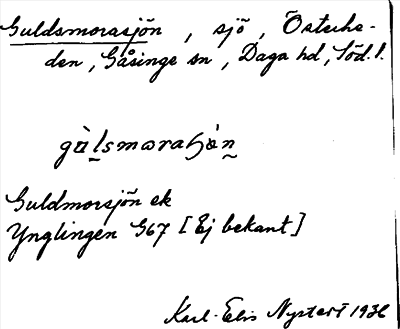 Guldsmorasjön, sjö, Österhe-
den, Gåsinge sn, Daga hd, Söd. l.
gùl̠smoraɧὼn̠
Guldmorsjön ek
Ynglingen G67 [Ej bekant]
Karl-Elis Nysterö 1936